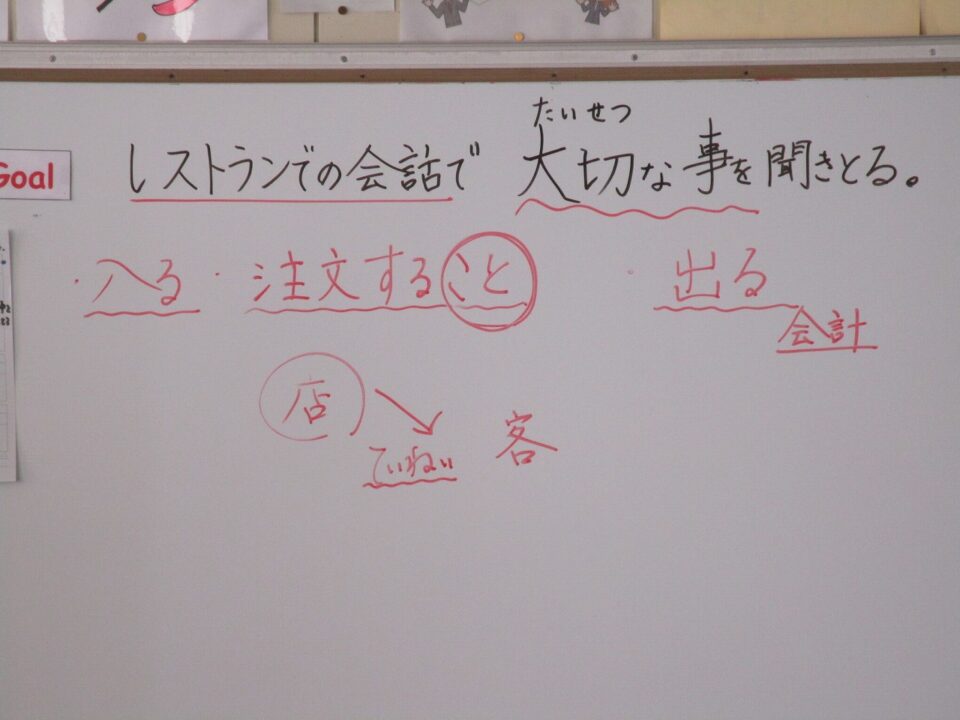 たいせつ
Goal レストランでの会話で 大切な事を聞きとる。
・入る ・注文すること ・出る
会計
店
ていねい 客